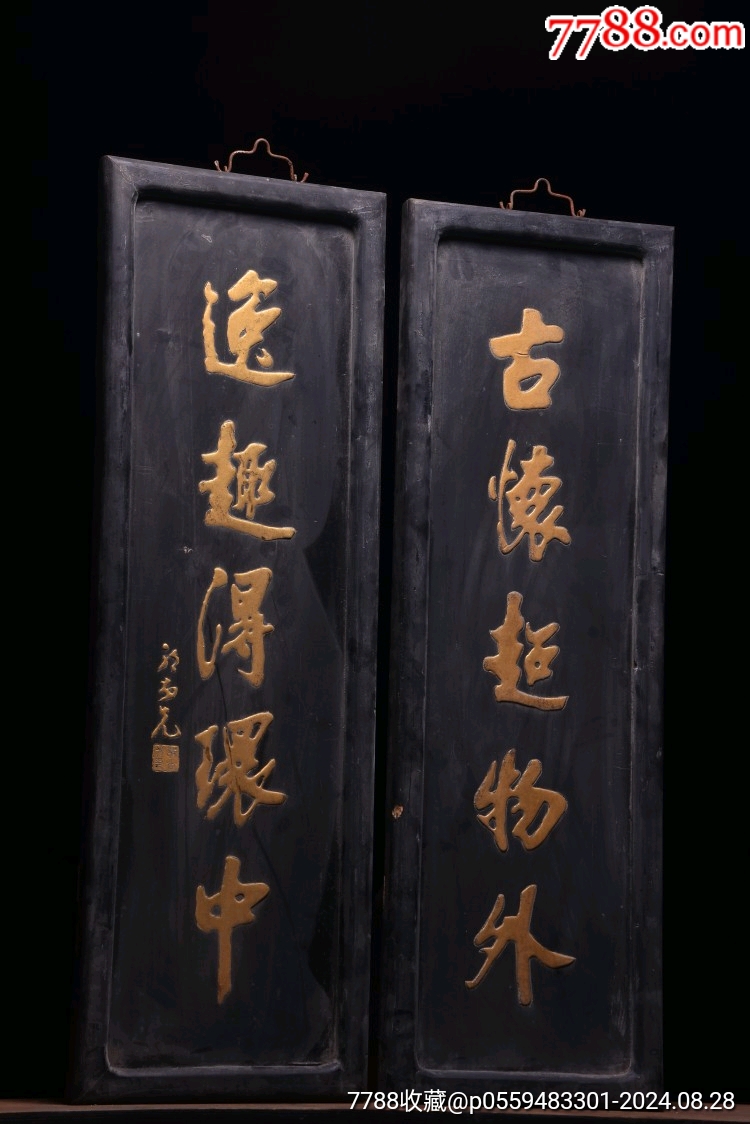 7788.com
古懷超物外
逸趣得環中
7788收藏@p0559483301-2024.08.28